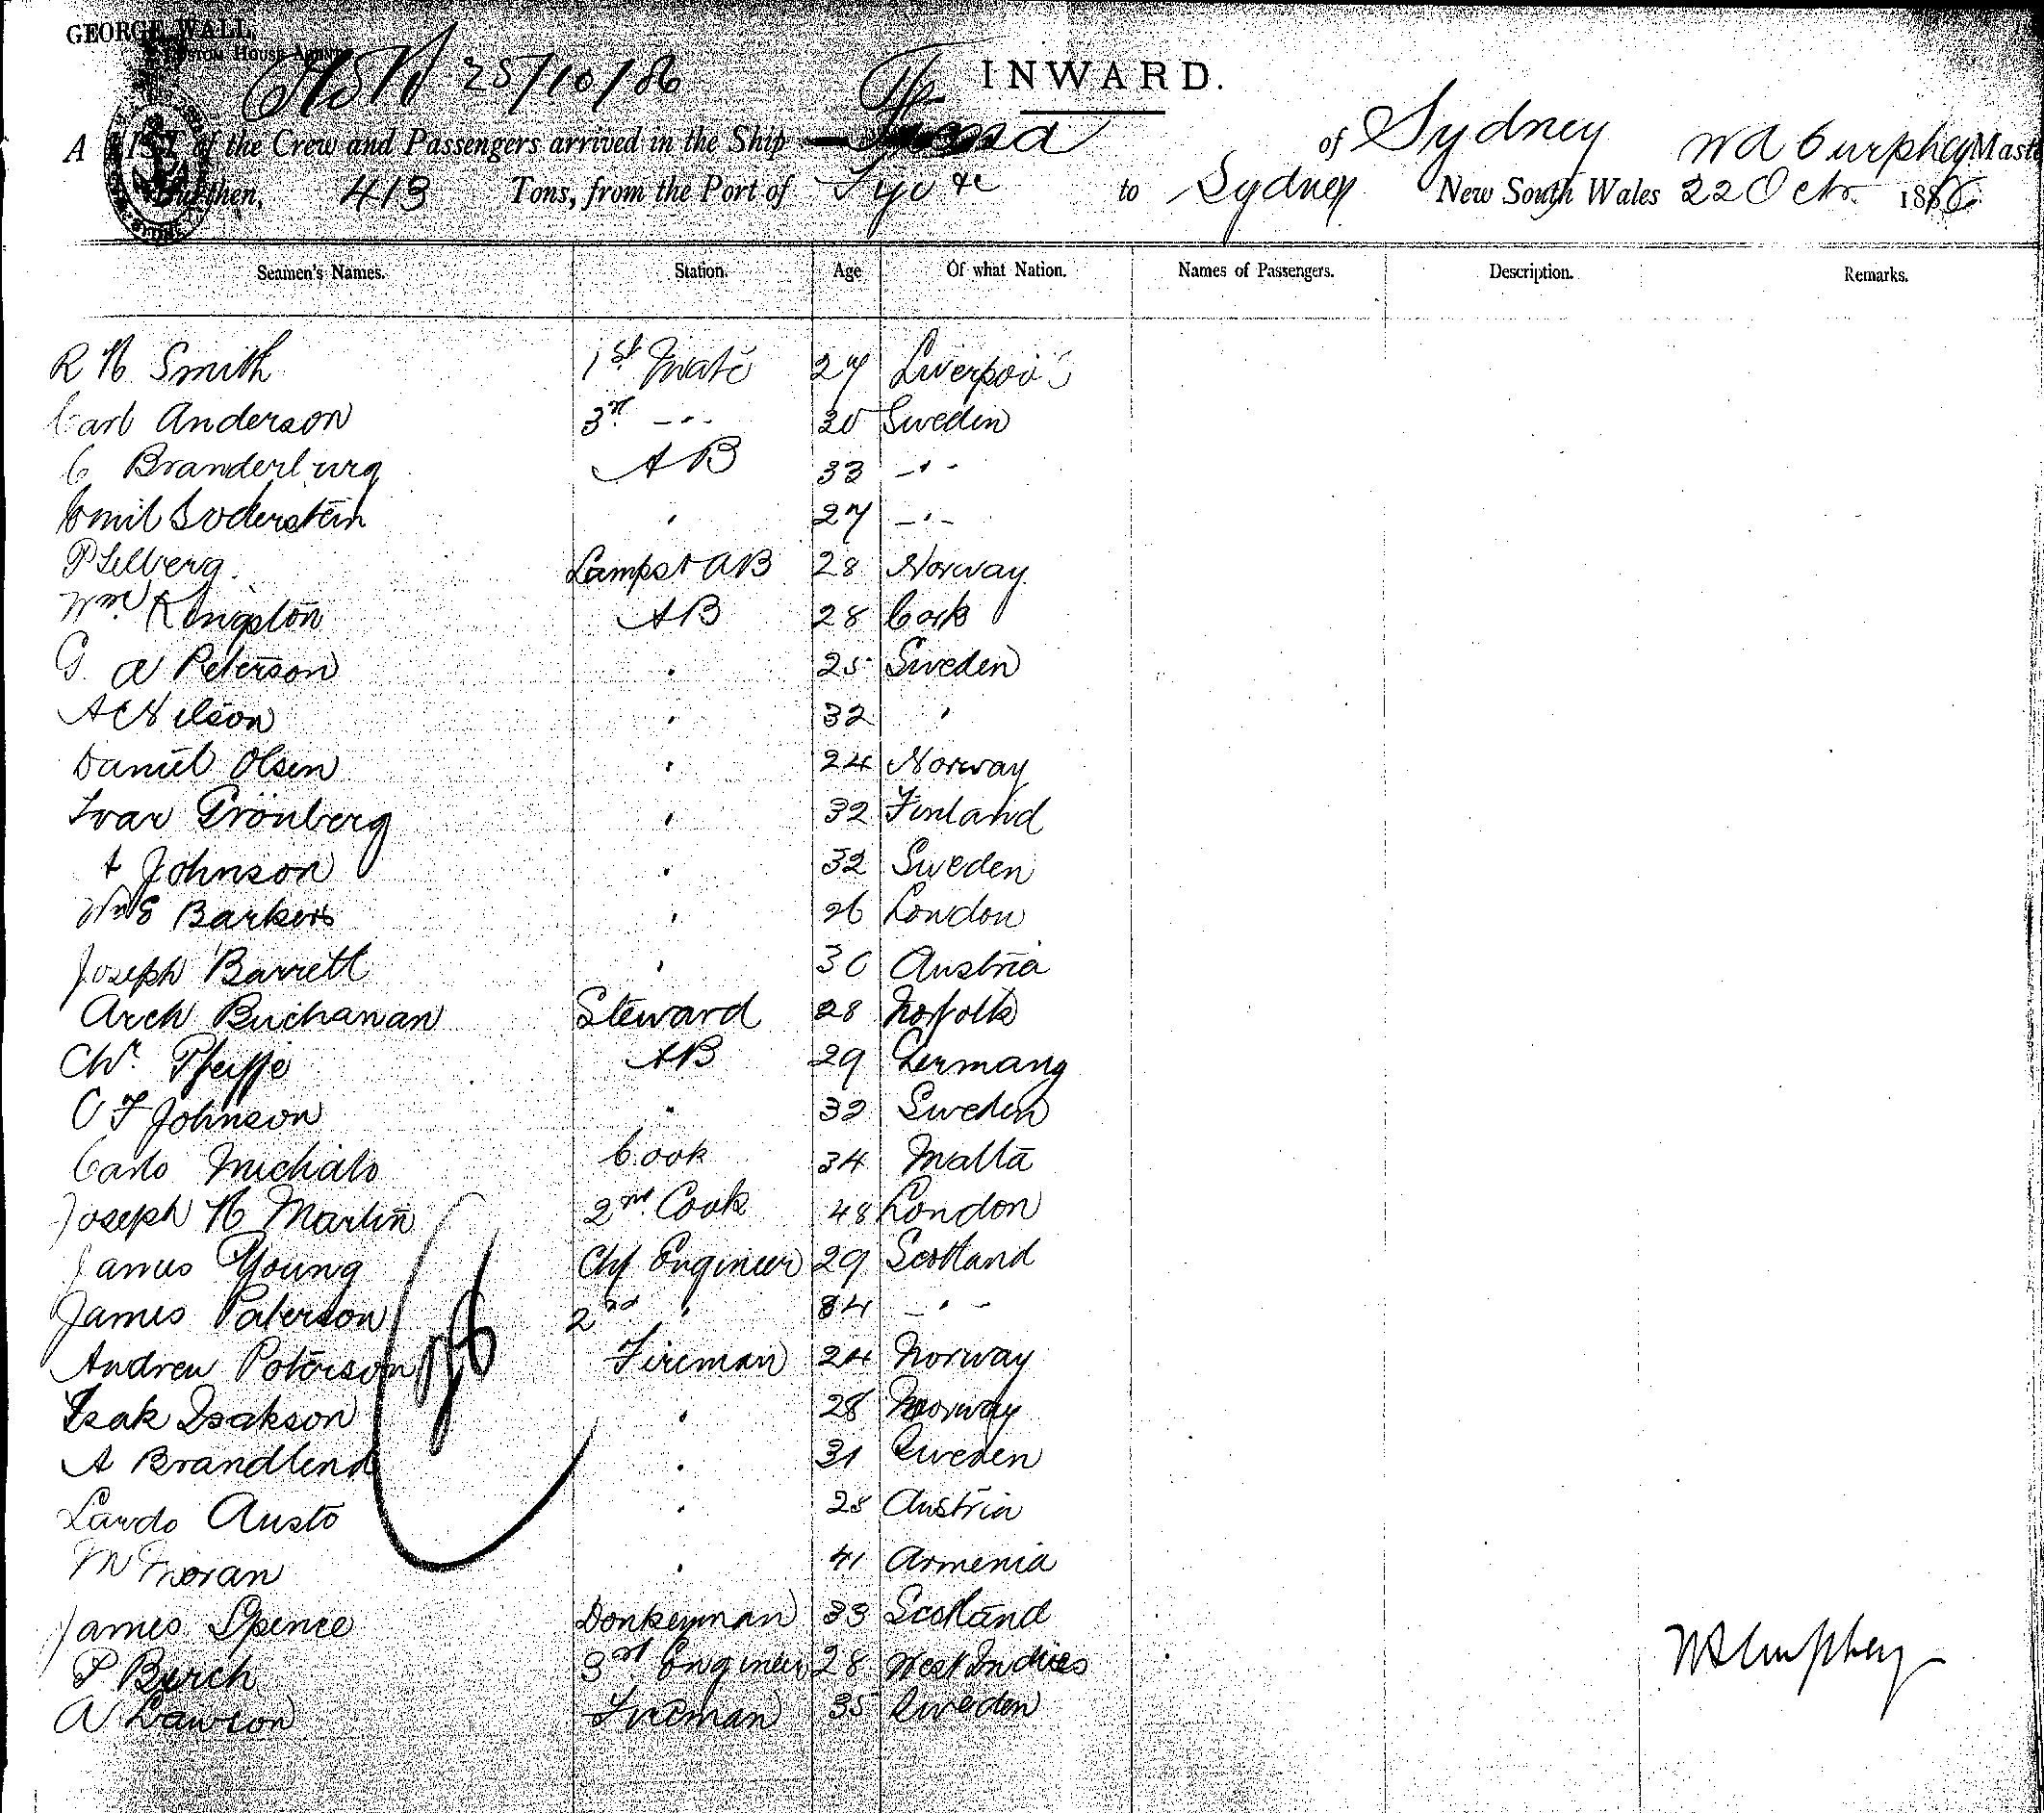 GEORGE WALL,
CUSTOM HOUSE AGENT
25/10/86
INWARD.
A LIST of the Crew and Passengers arrived in the Ship of Sydney Master
Burthen, 413 Tons, from the Port of to Sydney New South Wales 22 Octr. 1886
Seamen's Names. Station. Age Of what Nation. Names of Passengers. Description. Remarks.
R H Smith 1st Mate 27 Liverpool
Carl Anderson 3rd -"- 20 Sweden
C Branderburg AB 33 -"-
Emil Soderstein " 27 -"-
Lamps & AB 28 Norway
Wm Kingston AB 28 Cork
G. A Peterson " 25 Sweden
A C Nilson " 32 "
Daniel Olsen " 24 Norway
Ivar Grönberg " 32 Finland
A Johnson " 32 Sweden
Wm E Barkers " 26 London
Joseph Barrett " 30 Austria
Arch Buchanan Steward 28 Norfolk
Chr. Pfeiffe AB 29 Germany
C F Johnson " 32 Sweden
Carlo Michalo Cook 34 Malta
Joseph H Martin 2nd Cook 48 London
James Young Chf Engineer 29 Scotland
James Paterson 2nd " 34 -"-
Andrew Peterson Fireman 24 Norway
Isak Isakson " 28 Norway
A Brandlend " 31 Sweden
Lardo Austo " 28 Austria
M Moran " 41 Armenia
James Spence Donkeyman 33 Scotland
P Burch 3rd Engineer 28 West Indies
A Lawson Fireman 35 Sweden